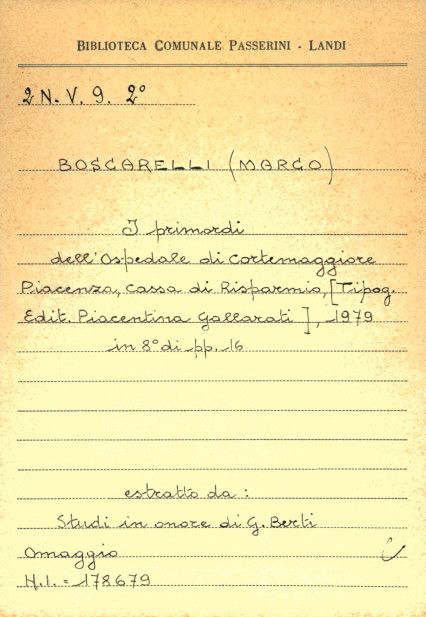 BIBLIOTECA COMUNALE PASSERINI - LANDI
2 N. V. 9. 2°
BOSCARELLI (MARCO)
I primordi
dell'Ospedale di Cortemaggiore
Piacenza, Cassa di Risparmio, [Tipog.
Edit. Piacentina Gallarati], 1979
in 8° di pp. 16
estratto da :
Studi in onore di G. Berti
Omaggio
N.I. = 178679